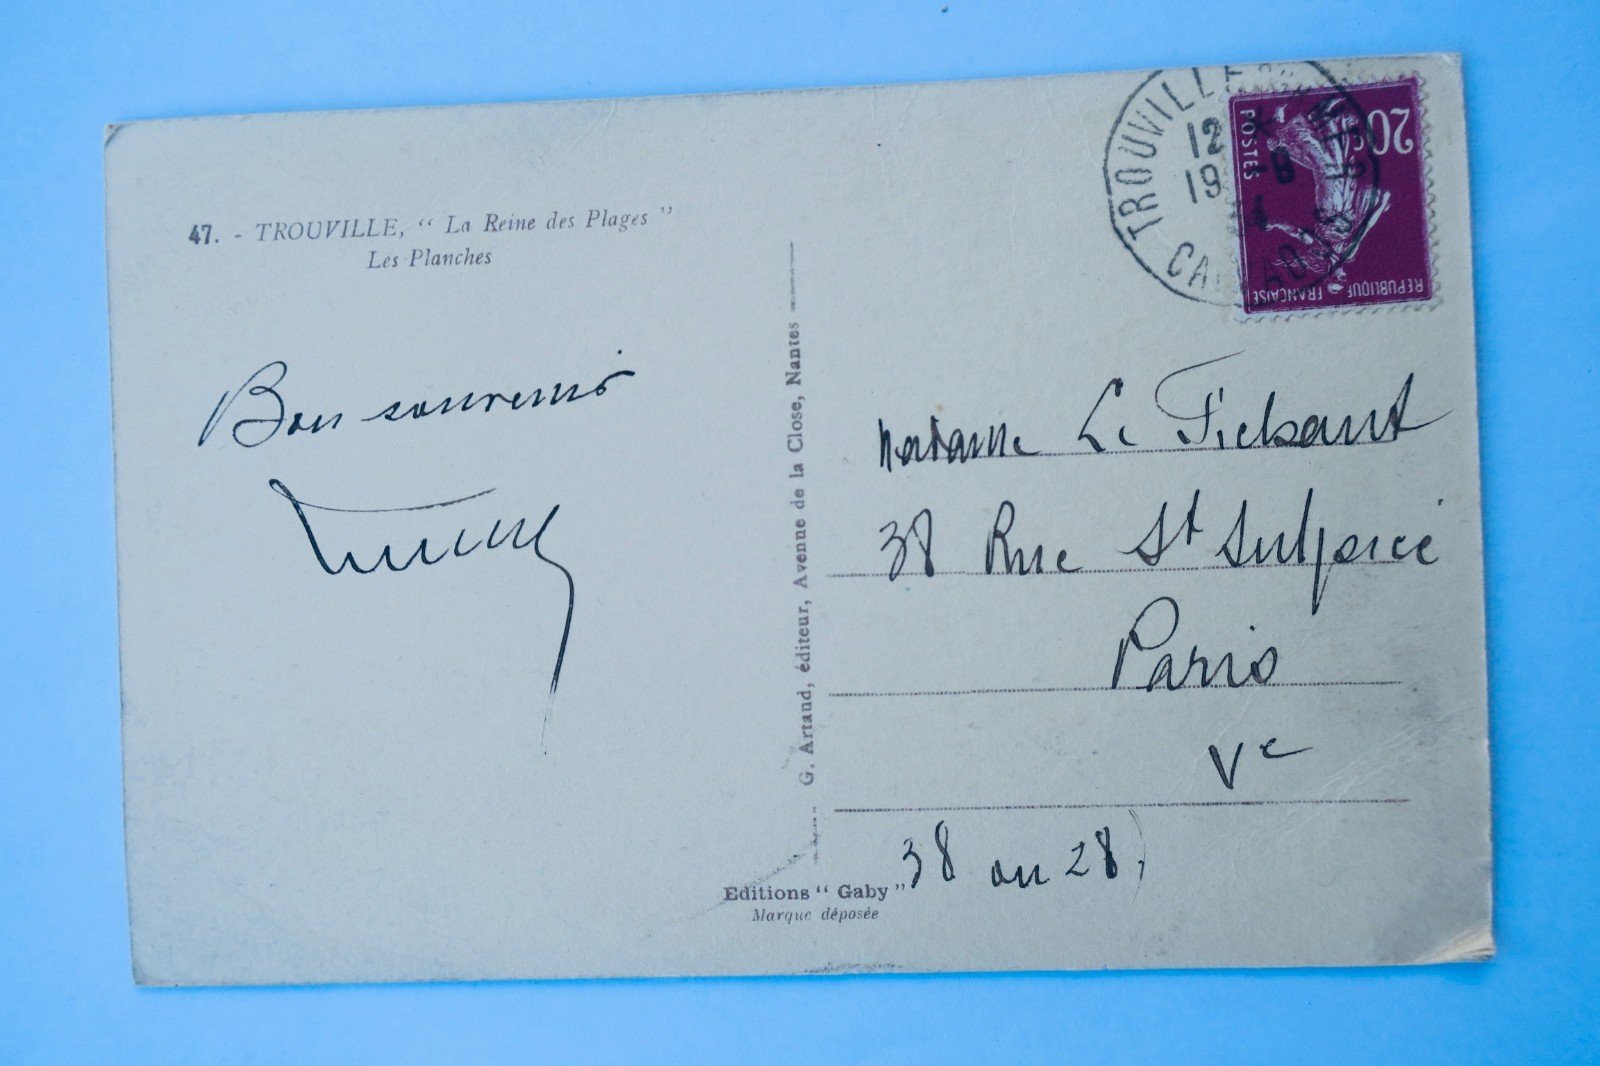 47. - TROUVILLE, “ La Reine des Plages ”
Les Planches
Bon souvenir
G. Artaud, éditeur, Avenue de la Close, Nantes
Editions “ Gaby ”
Marque déposée
TROUVILLE S/ MER
12
19 -8
CALVADOS
20c
POSTES
REPUBLIQUE FRANÇAISE
Madame Le
38 Rue St Sulpice
Paris
Ve
38 ou 28)